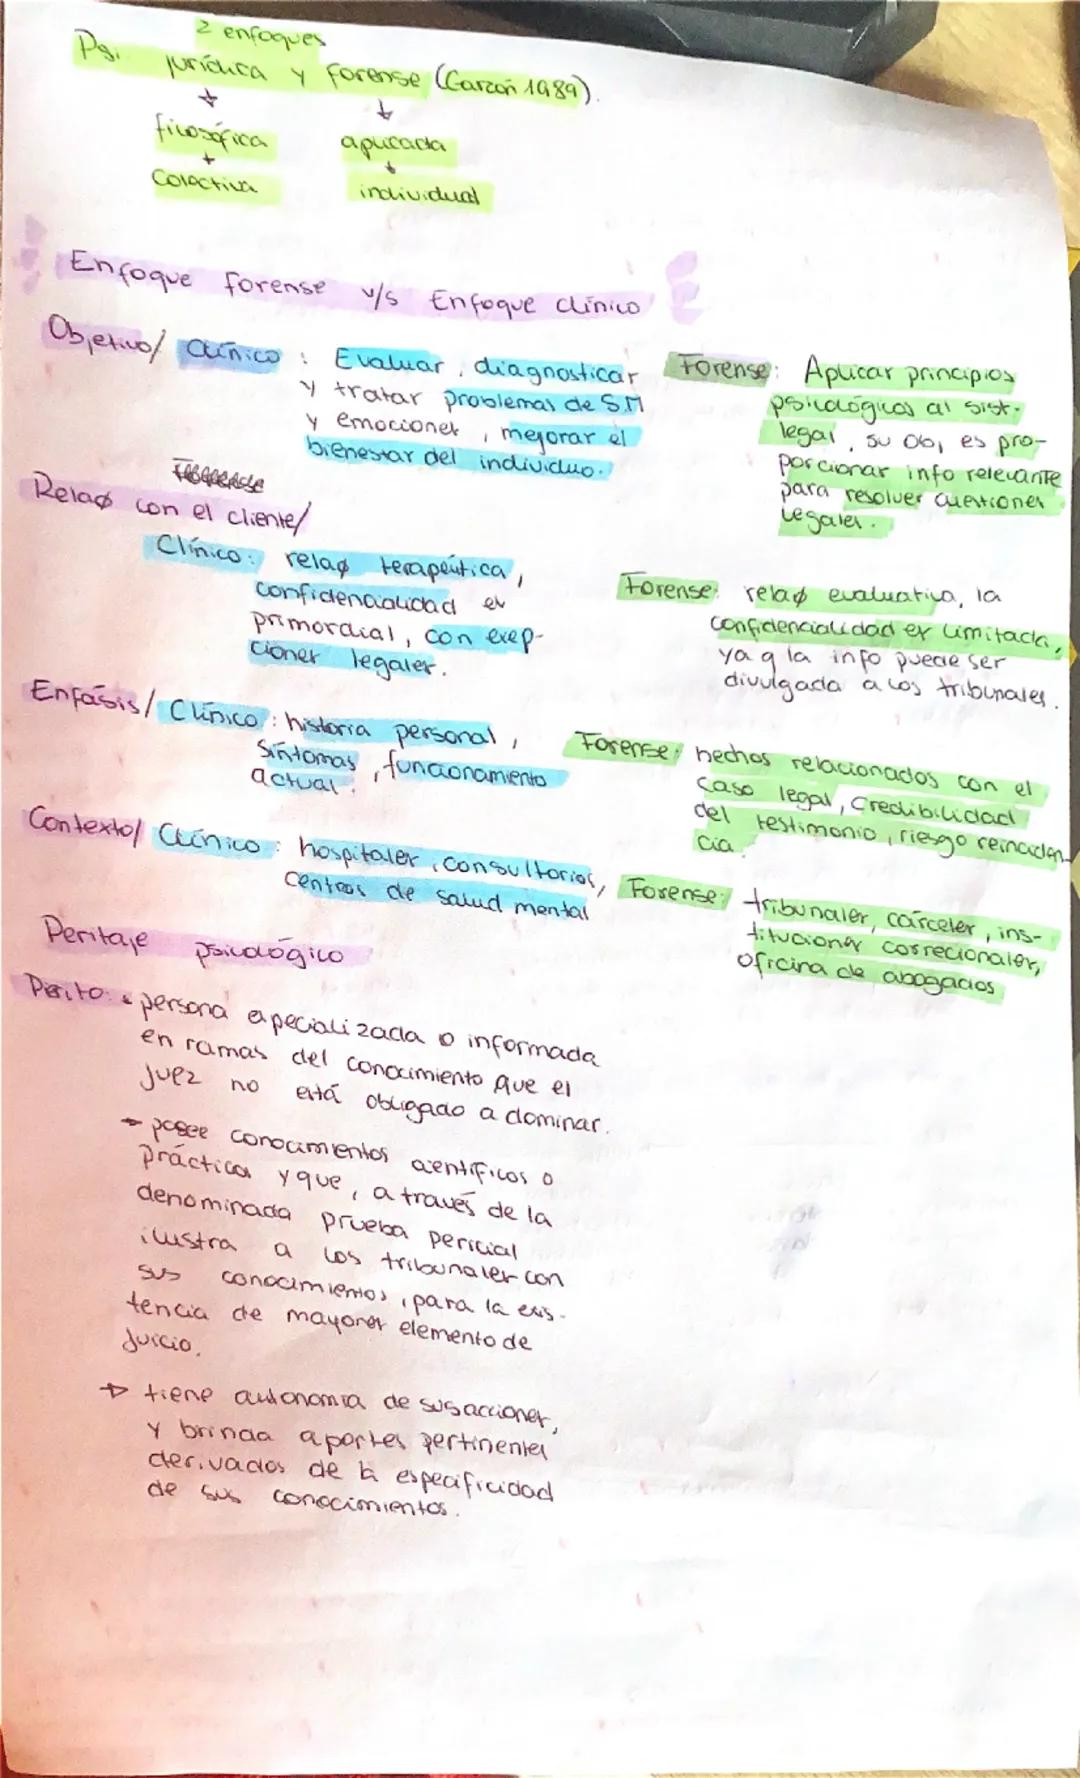 2 enfoques
Ps. jurídica y forense (Garzón 1989).
filosófica aplicada
Colectiva individual
Enfoque forense v/s Enfoque clínico
Objetivo/ Clínico : Evaluar, diagnosticar
y tratar problemas de S.M
y emociones, mejorar el
bienestar del individuo.
Forense: Aplicar principios
psicológicos al sist.
legal, su Obj es pro-
porcionar info relevante
para resolver cuestiones
legales.
Relaø con el cliente/
Clínico: relaø terapéutica,
confidencialidad es
primordial, con exep-
ciones legales.
Forense: relaø evaluativa, la
confidencialidad es limitada,
ya q la info puede ser
divulgada a los tribunales.
Enfásis/ Clínico: historia personal,
síntomas, funcionamiento
actual.
Forense: hechos relacionados con el
caso legal, credibilidad
del testimonio, riesgo reinciden-
cia.
Contexto/ Clínico: hospitales, consultorios,
centros de salud mental
Forense: tribunales, cárceles, ins-
tituciones correcionales,
oficina de abogados
Peritaje psicológico
Perito: persona especializada o informada
en ramas del conocimiento que el
juez no está obligado a dominar.
→ posee conocimientos científicos o
prácticos y que, a través de la
denominada prueba pericial
ilustra a los tribunales con
sus conocimientos, para la exis-
tencia de mayores elemento de
juicio.
→ tiene autonomía de sus acciones,
y brinda aportes pertinentes
derivados de la especificidad
de sus conocimientos.